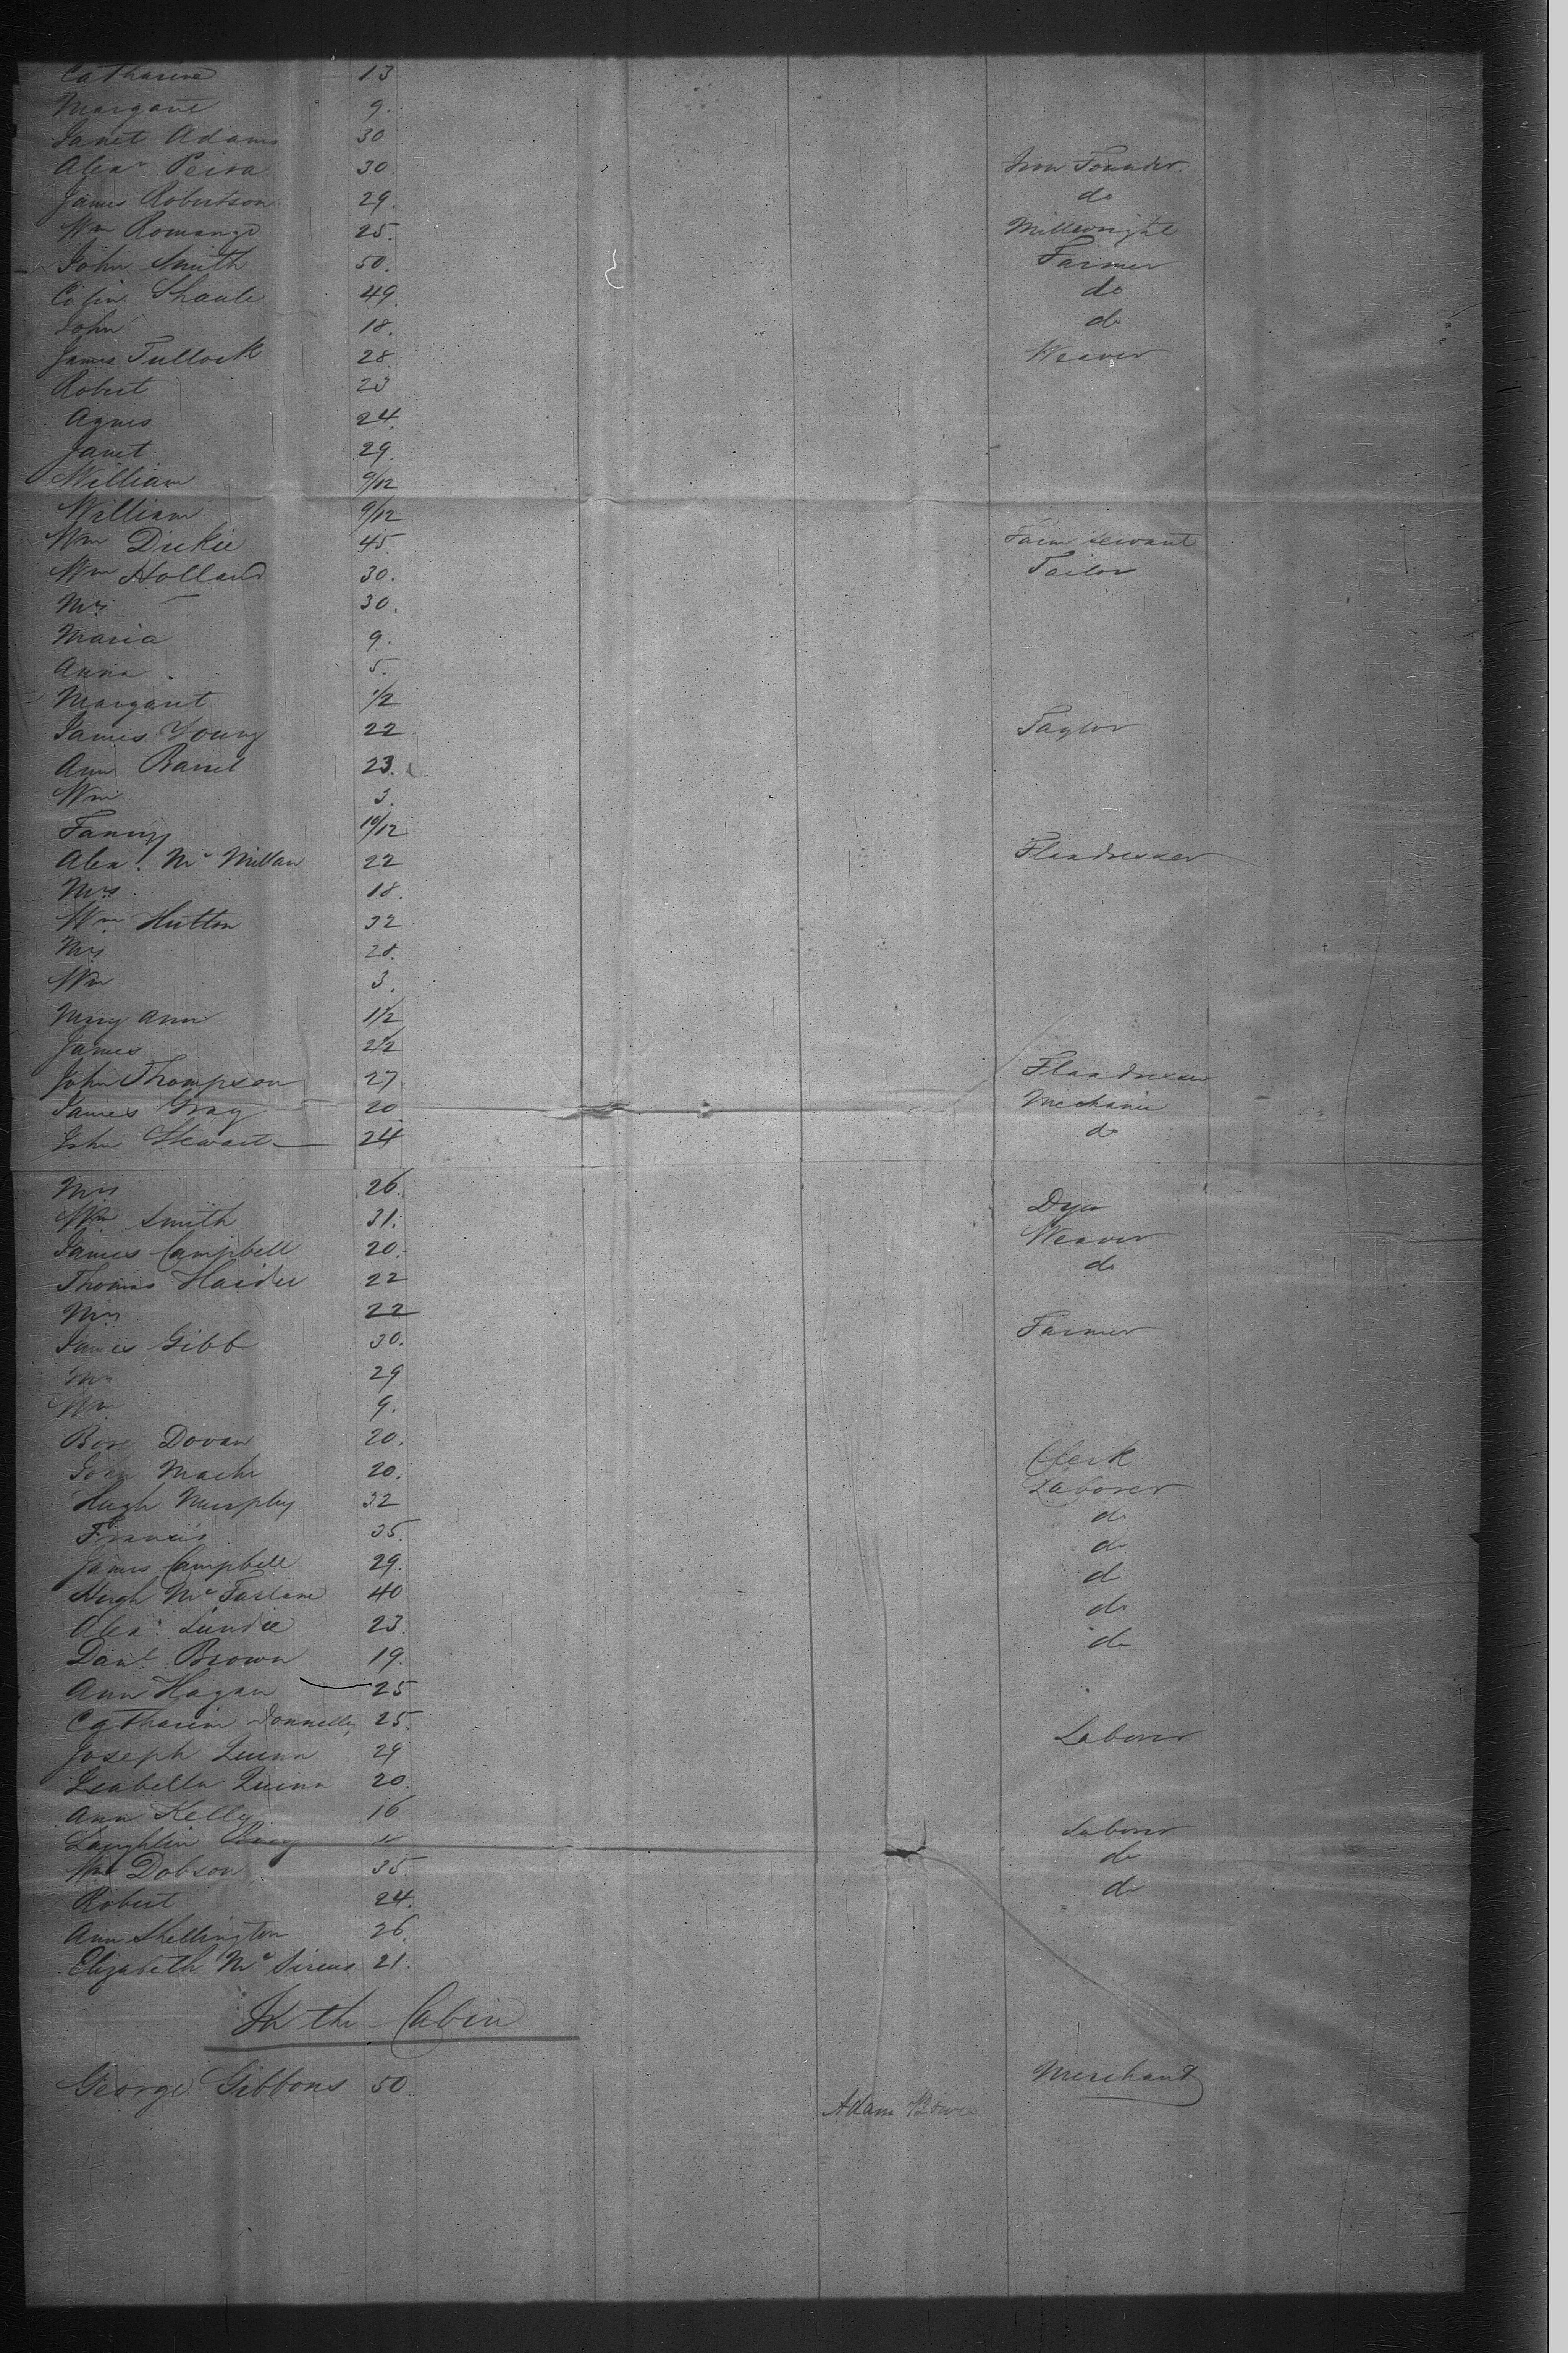 Catharine 13
Margaret 9.
Janet Adams 30
Alexr Peira 30. Iron Founder.
James Robertson 29. do
Wm Romange 25. Millwright
John Smith 50. Farmer
Colin 49. do
John 18. do
James Tullock 28. Weaver
Robert 23
Agnes 24.
Janet 29.
William 9/12
William 9/12
Wm Dickie 45. Farm servant
Wm Holland 30. Tailor
Mrs — 30.
Maria 9.
Anna 5.
Margaret 1/2
James Young 22 Taylor
Ann 23.
Wm 3.
Fanny 10/12
Alexr Mc Millan 22 Flaxdresser
Mrs 18.
Wm Hutton 32
Mrs 28.
Wm 3.
Mary Ann 1 1/2
James 2 1/2
John Thompson 27 Flaxdresser
James Gray 20 Mechanic
John Stewart 24 do
Mrs 26.
Wm Smith 31. Dyer
James Campbell 20. Weaver
Thomas 22 do
Mrs 22
James Gibb 30. Farmer
Mrs 29
Wm 9.
Dovan 20.
John 20. Clerk
Hugh Murphy 32 Laborer
Francis 35. do
James Campbell 29. do
Hugh Mc Farlane 40 do
Alexr Lundie 23. do
Danl Brown 19. do
Ann Hagan 25
Catharine Donnelly 25.
Joseph Quinn 29 Laborer
Isabella Quinn 20.
Ann Kelly 16
Laughlin Laborer
Wm Dobson 35. do
Robert 24. do
Ann Shellington 26.
Elizabeth Mc 21.
In the Cabin
George Gibbons 50. Merchant
Adam